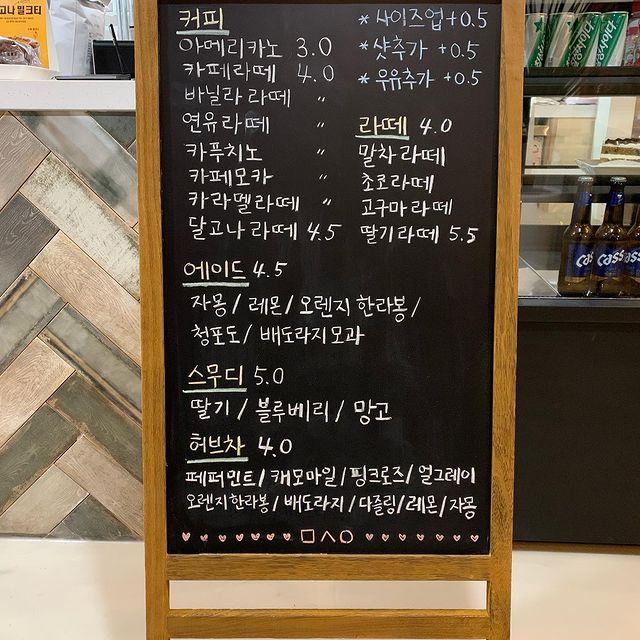 고나 밀크티
커피
아메리카노 3.0
카페라떼 4.0
바닐라 라떼 "
연유라떼 "
카푸치노 "
카페모카 "
카라멜라떼 "
달고나 라떼 4.5
* 사이즈업+0.5
* 샷추가 +0.5
* 우유추가 +0.5
라떼 4.0
말차라떼
초코라떼
고구마라떼
딸기라떼 5.5
에이드 4.5
자몽 / 레몬 / 오렌지 한라봉 /
청포도 / 배도라지모과
스무디 5.0
딸기 / 블루베리 / 망고
허브차 4.0
페퍼민트 / 캐모마일 / 핑크로즈 / 얼그레이
오렌지한라봉 / 배도라지 / 다즐링 / 레몬 / 자몽
□△○
Cass
Cass